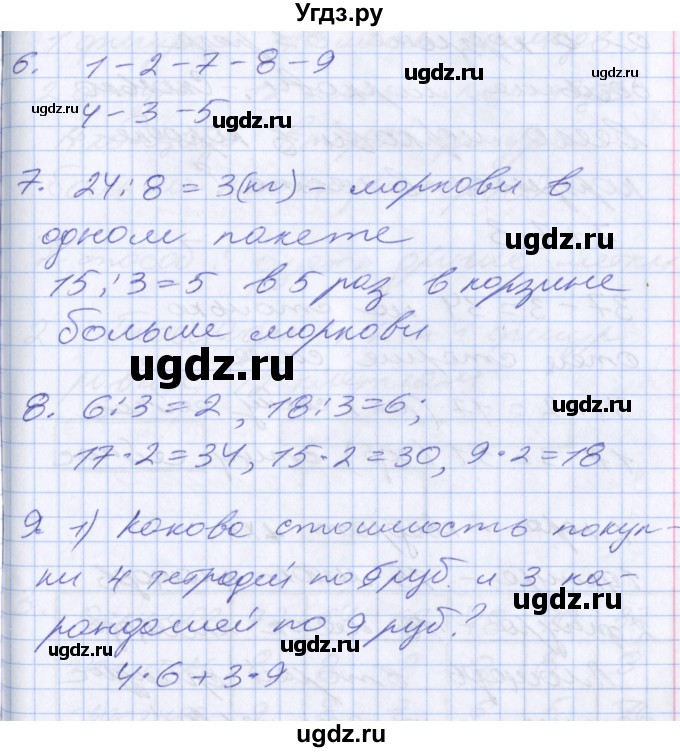 Угдз.ру
6. 1 - 2 - 7 - 8 - 9
ugdz.ru
4 - 3 - 5
ugdz.ru
7. 24 : 8 = 3(кг) - моркови в
одном пакете
ugdz.ru
15 : 3 = 5 в 5 раз в корзине
больше моркови
ugdz.ru
8. 6 : 3 = 2, 18 : 3 = 6;
ugdz.ru
17 · 2 = 34, 15 · 2 = 30, 9 · 2 = 18
ugdz.ru
ugdz.ru
9. 1) Какова стоимость покуп-
ки 4 тетрадей по руб. и 3 ка-
ugdz.ru
рандашей по 9 руб?
ugdz.ru
ugdz.ru
4 · 6 + 3 · 9
ugdz.ru